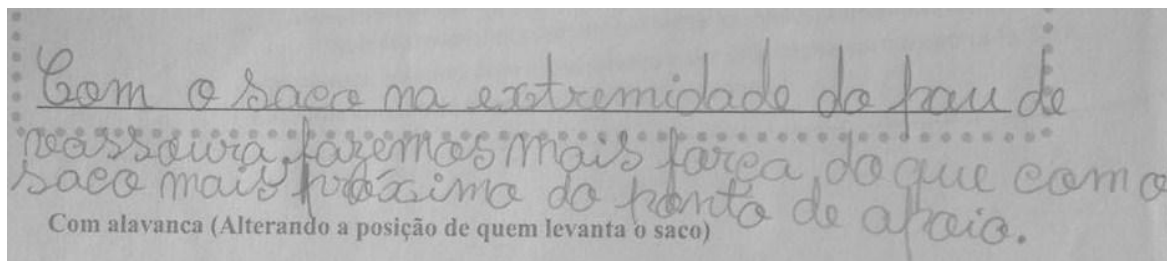 Com o saco na extremidade do pau de
vassoura, fazemos mais força, do que com o
saco mais próximo do ponto de apoio.
Com alavanca (Alterando a posição de quem levanta o saco)